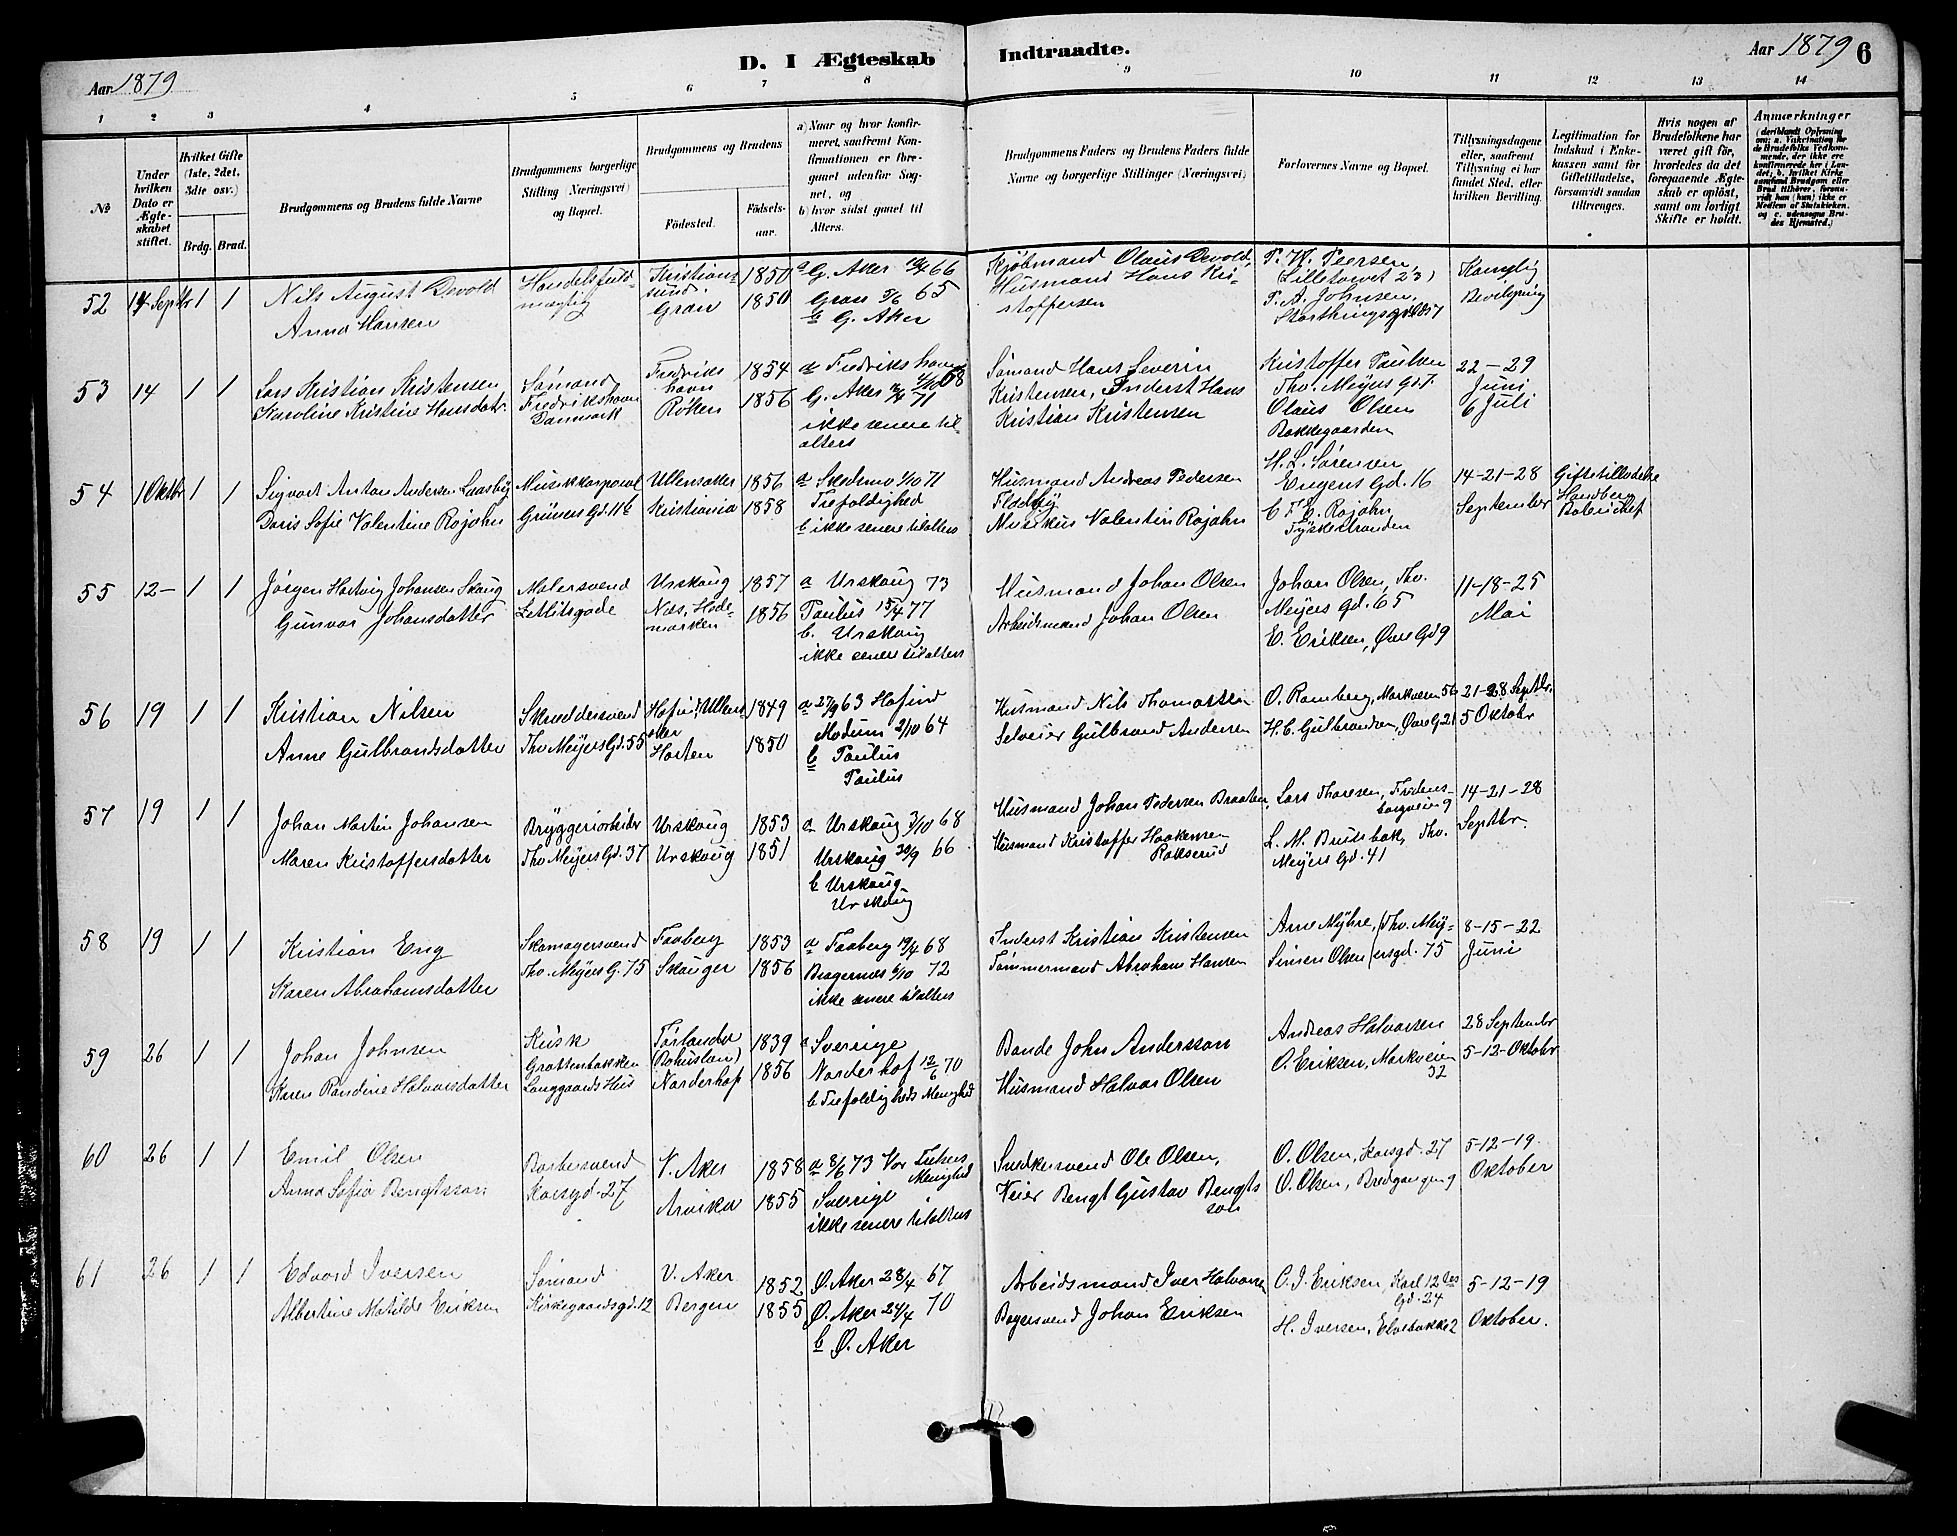 Aar 1879
D. I Ægteskab Indtraadte.
Aar 1879 6
1 2 3 4 5 6 7 8 9 10 11 12 13 14
№
Under hvilken Dato er Ægteskabet stiftet.
Hvilket Gifte (1ste, 2det, 3die osv.)
Brdg. Brud.
Brudgommens og Brudens fulde Navne
Brudgommens borgerlige Stilling (Næringsvei) og Bopæl.
Brudgommens og Brudens
Fødested.
Fødselsaar.
a) Naar og hvor konfirmeret, saafremt Konfirmationen er foregaaet udenfor Sognet, og
b) hvor sidst gaaet til Alters.
Brudgommens Faders og Brudens Faders fulde Navne og borgerlige Stillinger (Næringsvei)
Forlovernes Navne og Bopæl.
Tillysningsdagene eller, saafremt Tillysning ei har fundet Sted, efter hvilken Bevilling.
Legitimation for Indskud i Enkekassen samt for Giftetilladelse, forsaavidt saadan tiltrænges.
Hvis nogen af Brudefolkene har været gift før, hvorledes da det foregaaende Ægteskab er opløst, samt om lovligt Skifte er holdt.
Anmærkninger
(deriblandt Oplysning om: a. Vakcination for de Brudefolks Vedkommende, der ikke ere konfirmerede her i Landet; b. hvilket Kirkesamfund Brudgom eller Brud tilhører, forsaavidt han (hun) ikke er Medlem af Statskirken, og c. udensogns Brudes Hjemsted.)
52 14 Septbr 1 1
Nils August Devold
Anna Hansen
Handelsfuldmægtig
Kristianssund 1850
Gran 1850
a G. Aker 66
Gran 5/6 65
b G. Aker
Kjøbmand Olaus Devold,
Husmand Hans Kristoffersen
P. W. Peersen, Lilletorvet 23)
P. A. Johnsen, Storthingsgd
Kongelig Bevilgning
53 14 1 1
Lars Kristian Kristensen
Karoline Kristine Hansdatr.
Sømand Fredrikshavn Danmark
Fredrikshavn 1854
Røken 1856
a Fredrikshavn 68
G. Aker 71
ikke senere tilalters
Sømand Hans Severin Kristensen, Inderst Hans
Kristian Kristensen
Kristoffer Paulsen Thv. Meyers Gd 7.
Olaus Olsen Bakkegaarden
22-29 Juni 6 Juli
54 1 Oktbr 1 1
Sigvart Anton Andersen Laasby
Doris Sofie Valentine Rojahn
Musikkorporal
Grüners Gd. 11 b
Ullensaker 1856
Kristiania 1858
a Skedsmo 1/10 71
Trefoldighed
b ikke senere tilalters
Husmand Andreas Pedersen
Musikus Valentin Rojahn
H. L. Sørensen Engens Gd. 16
C F E. Rojahn Tyskestranden
14-21-28 September
Giftetilladelse
55 12- 1 1
Jørgen Hartvig Johansen Skaug
Gunvor Johansdatter
Malersvend
Urskoug 1857
Næs, Hedemarken 1856
a Urskoug 73
Paulus 15/4 77
b. Urskoug
ikke senere tilalters
Husmand Johan Olsen
Arbeidsmand Johan Olsen
Johan Olsen, Thv. Meyers Gd. 65
E. Eriksen, Øvre Gd 9
11-18-25 Mai
56 19 1 1
Kristian Nilsen
Anne Gulbrandsdatter
Skræddersvend
Thv Meyers Gd. 55
Hofind, Ullensaker 1849
Horten 1850
a 27/9 63 Hofind
Modum 2/10 64
b Paulus
Paulus
Husmand Nils Thomassen
Selveier Gulbrand Andersen
O. Ramberg, Markveien 56
H. C. Gulbrandsen, Øvre Gd 21
21-28 Septbr. 5 Oktobr
57 19 1 1
Johan Martin Johansen
Maren Kristoffersdatter
Bryggeriarbeider
Thv Meyers Gd. 37
Urskoug 1853
Urskoug 1851
a Urskoug 3/10 68
Urskoug 30/9 66
b Urskoug
Urskoug
Husmand Johan Pedersen Braaten
Husmand Kristoffer Haakensen Rakserud
Lars Thoresen, Fredensborgveien 9
L. M. Brudsbak, Thv. Meyers Gd. 41
14-21-28 Septbr.
58 19 1 1
Kristian Eng
Karen Abrahamsdatter
Skomagersvend
Thv. Meyers G. 75
Faaberg 1853
Skauger 1856
a Faaberg 19/4 68
Bragernæs 6/10 72
ikke senere tilalters
Inderst Kristian Kristensen
Tømmermand Abraham Hansen
Arne Myhre, (Thv. Mey-
Simen Olsen (ersgd. 75
8-15-22 Juni
59 26 1 1
Johan Johnsen
Karen Randine Halvorsdatter
Kusk
Grottenbakken Langgaards Hus
Tørlanda (Bohuslan) 1839
Norderhof 1856
a Sverige
Norderhof 12/6 70
b Trefoldigheds Menighed
Bonde John Andersson
Husmand Halvor Olsen
Andreas Halvorsen
O. Eriksen, Markveien 32
28 September
5-12-Oktobr
60 26 1 1
Emil Olsen
Anna Sofia Bengtsson
Barbersvend
Korsgd. 27
V. Aker 1858
Arvika 1855
a 8/6 73 Vor Frelsers Menighed
Sverige
ikke senere tilalters
Snedkersvend Ole Olsen,
Veier Bengt Gustav Bengtsson
O. Olsen, Korsgd. 27
O. Olsen, Bredgangen 9
5-12-19 Oktober
61 26 1 1
Edvard Iversen
Albertine Matilde Eriksen
Sømand
Kirkegaardsgd. 12
V. Aker 1852
Bergen 1855
Ø. Aker 28/4 67
Ø. Aker 24/4 70
b Ø. Aker
Arbeidsmand Iver Halvorsen
Bagersvend Johan Eriksen
C. I. Eriksen, Karl 12tes Gd. 24
H. Iversen, Elvebakke 2
5-12-19
Oktober.